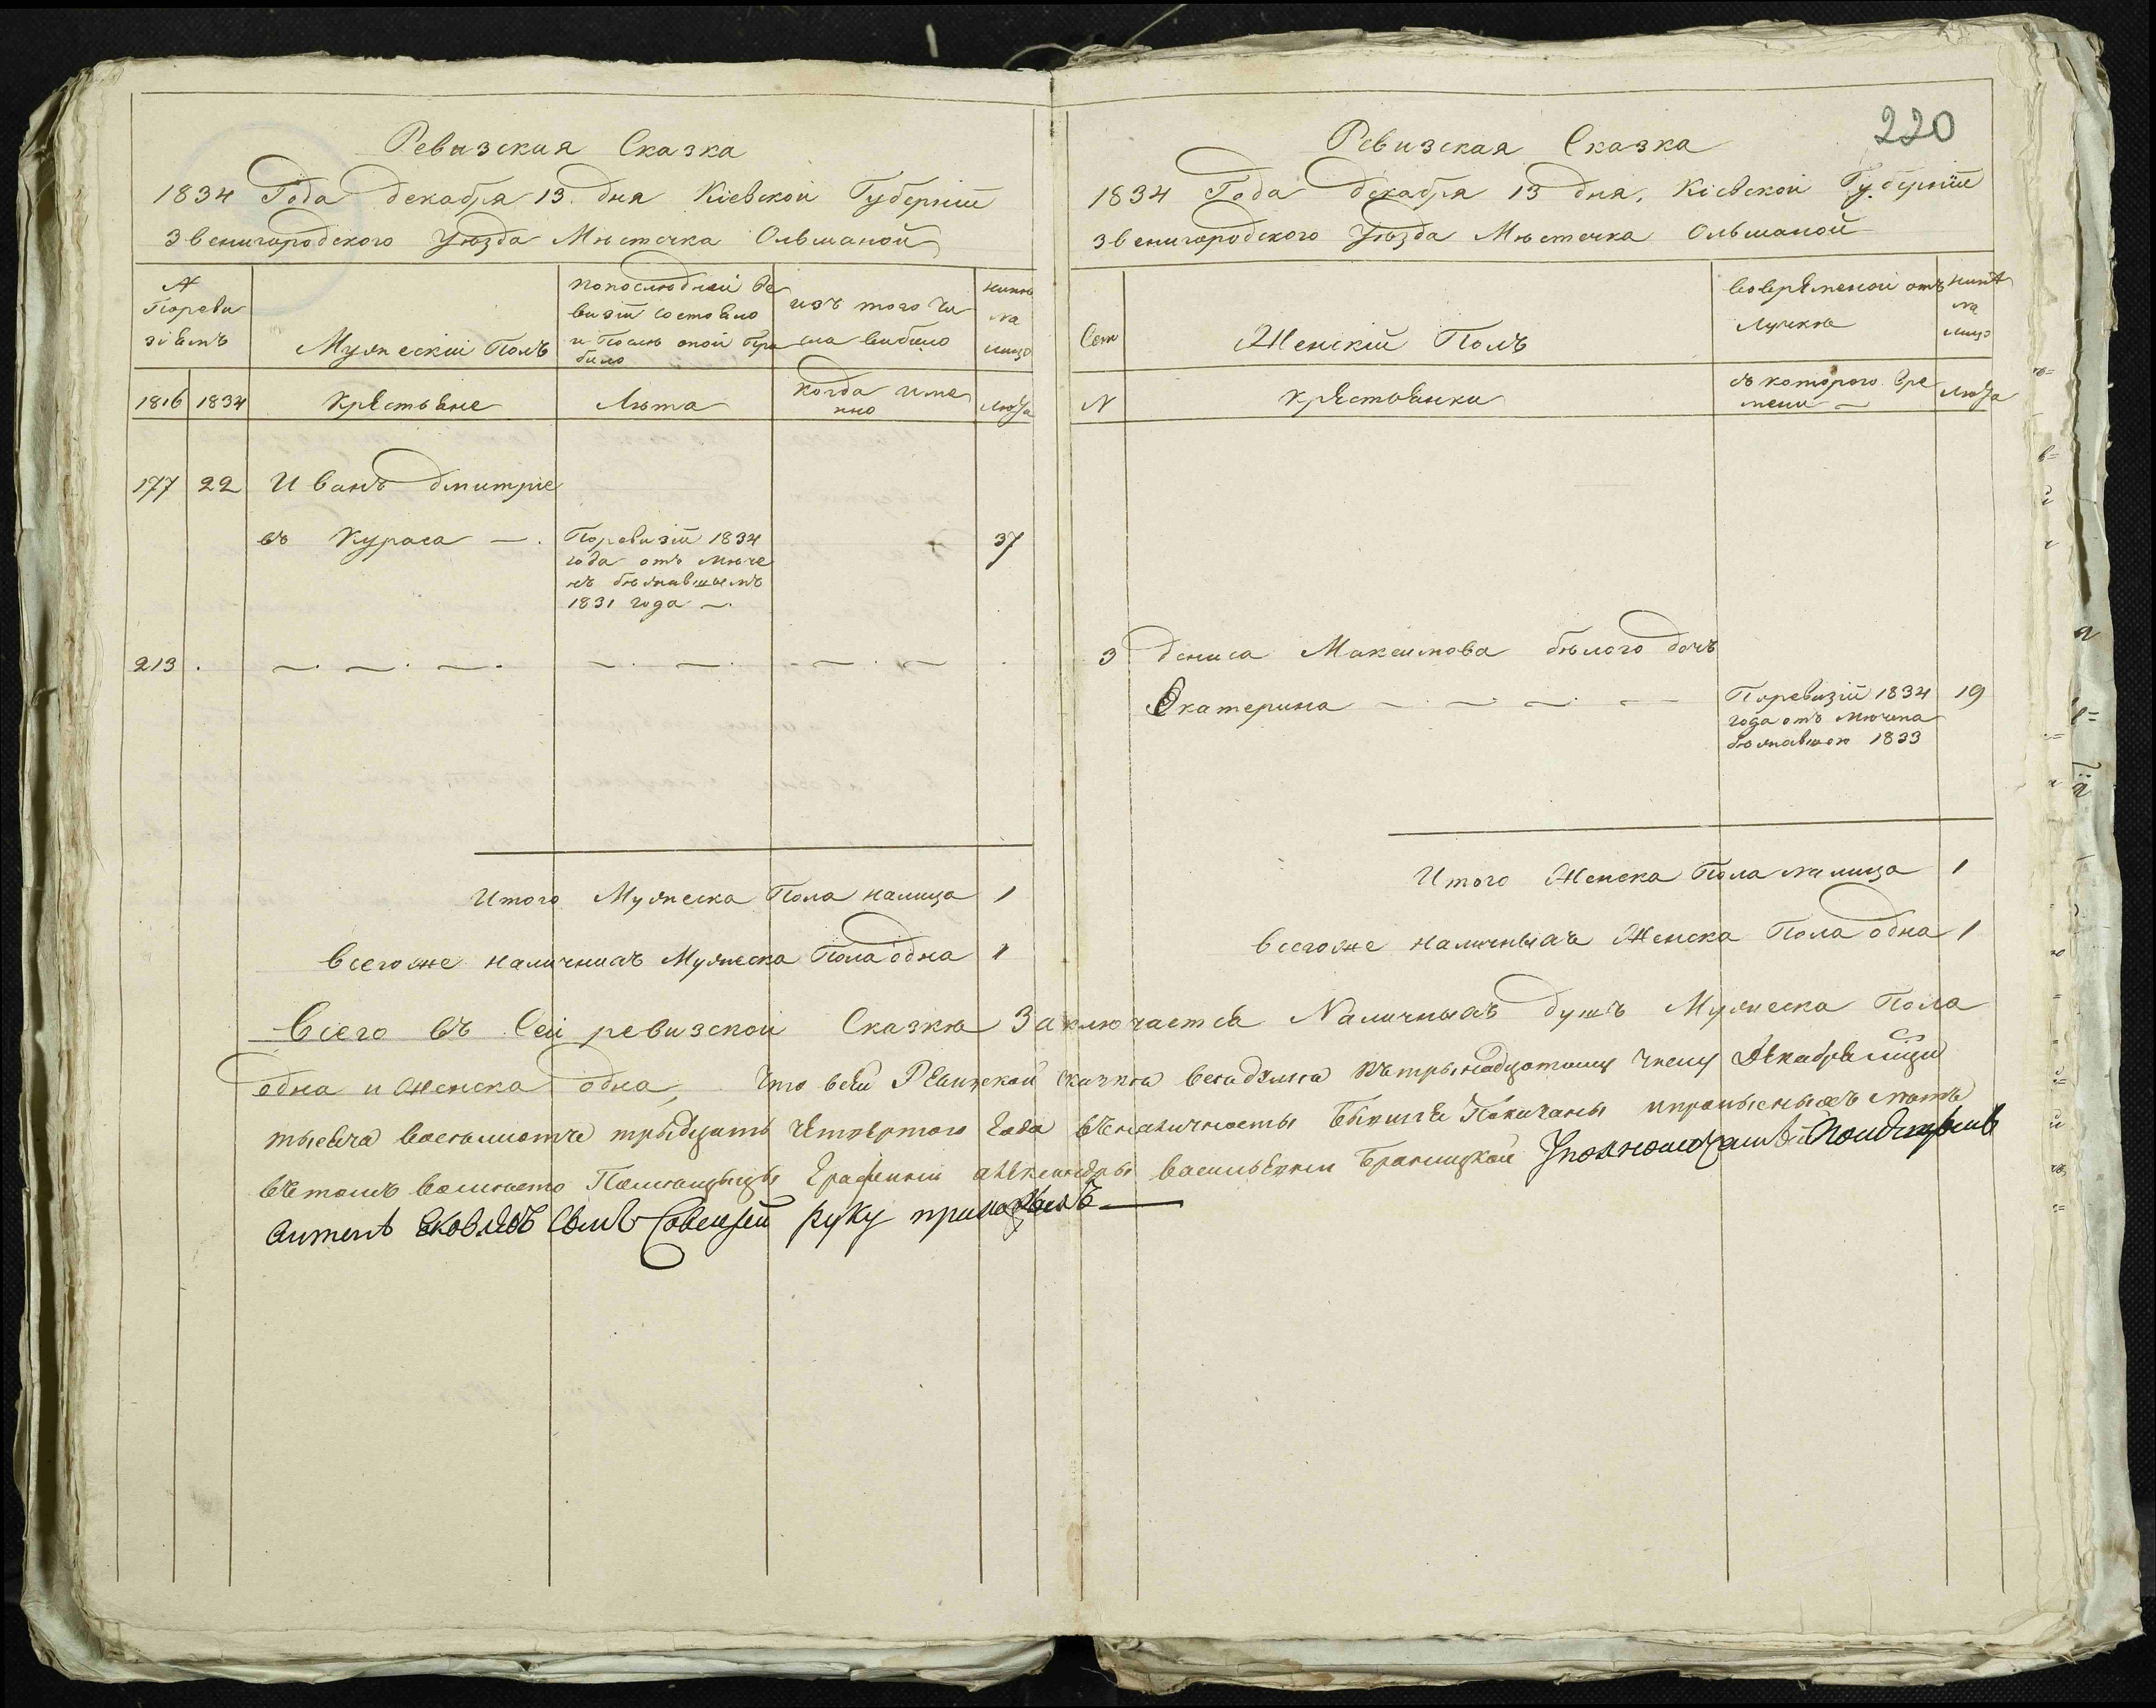 Ревизская Сказка
1834 Года декабря 13 дня Кіевской Губерніи
Звенигородского Уѣзда Мѣстечка Ольшаной
№
Пореви
зіямъ
Мужескій Полъ
попослѣдней ре
визіи состояло
и После оной При
было
изъ того чи
сла выбыло
нинѣ
на
лицо
1816 1834
Крестьяне
Лѣта
Когда име
нно
лѣта
177 22 Иванъ дмитріе
въ Кураса —.
Поревизіи 1834
года отъ мѣче
нъ бѣжавшымъ
1831 года —.
37
213 .
Итого Мужеска Пола налицо 1
всегоже наличнихъ Мужеска Пола одна 1
220
Ревизская Сказка
1834 Года декабря 13 дня, Кіевской Губерніи
Звенигородского Уѣзда Мѣстечка Ольшаной
Сем
Женскій Полъ
вовременой отъ
лучкѣ
нинѣ
на
лицо
N
крестьянки
съ которого вре
мени —
лѣта
3 дениса Максимова бѣлого дочъ
Екатерина
Поревизіи 1834
года отъ мѣчена
бѣжавшою 1833
19
Итого Женска Пола налицо 1
всегоже наличныхъ Женска Пола одна 1
Всего въ Сей ревизской Сказкѣ Заключается Наличныхъ душъ Мужеска Пола
одна и Женска одна, Что всей Ревизской сказки къ трынадцатому числу Декабря
тысяча восемсотъ трыдцать Четвертого Года
въ томъ Графини Александры васильевны Браницкой
руку приложилъ —